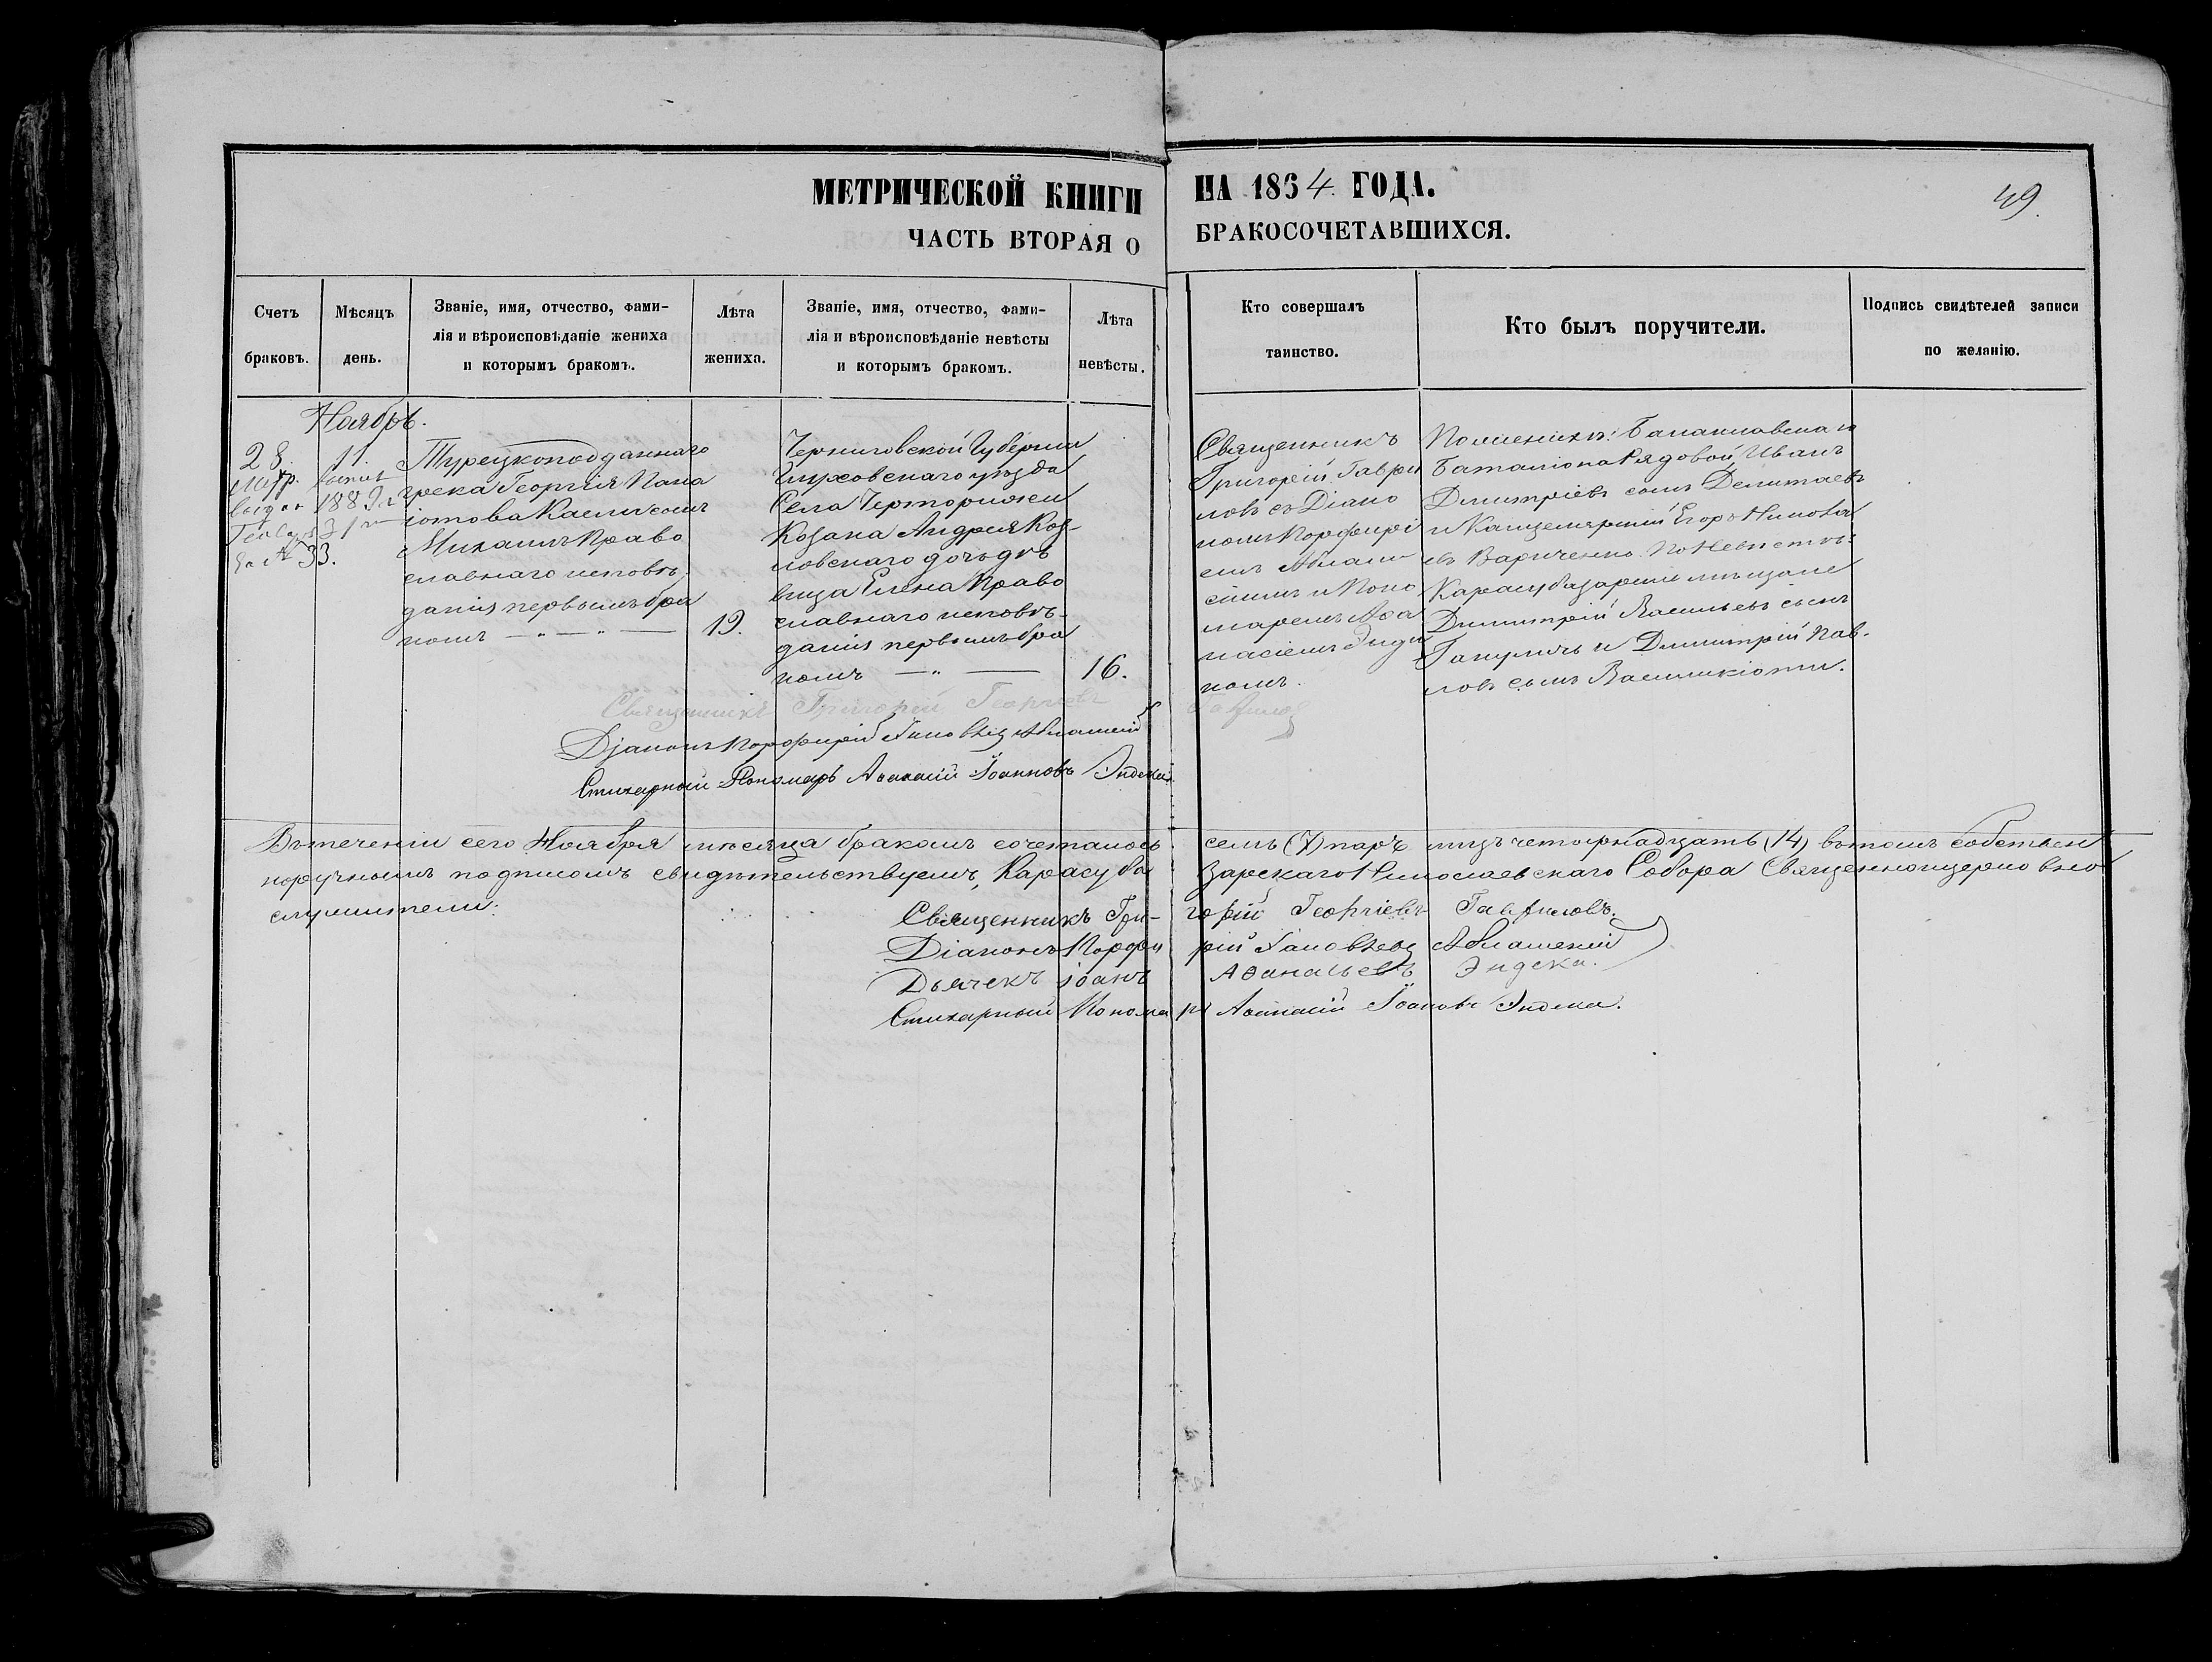 МЕТРИЧЕСКОЙ КНИГИ НА 1864. ГОДА.
49.
ЧАСТЬ ВТОРАЯ О БРАКОСОЧЕТАВШИХСЯ.
Счетъ
браковъ.
Мѣсяцъ
день.
Званіе, имя, отчество, фами-
лія и вѣроисповѣданіе жениха
и которымъ бракомъ.
Лѣта
жениха.
Званіе, имя, отчество, фами-
лія и вѣроисповѣданіе невѣсты
и которымъ бракомъ.
Лѣта
невѣсты.
Кто совершалъ
таинство.
Кто былъ поручители.
Подпись свидѣтелей записи
по желанію.
Ноябрь.
28.
11.
1883 г
31
За № 33.
Турецкоподданнаго
грека Георгія Пана
іотова сынъ
Михаилъ Право
славнаго исповѣ-
данія первымъ бра
комъ
19.
Черниговской Губерніи
Глуховскаго уѣзда
Села
Козака Андрея Коз-
ловскаго дочь дѣ
вица Елена Право
славнаго исповѣ-
данія первымъ бра
комъ
16.
Священникъ
Григорій Гаври
ловъ съ Діако
номъ Порфирі
емъ
и Поно
маремъ Аѳа
насіемъ Энде
комъ.
По женихѣ: Балаклавскаго
Баталіона Рядовой Иванъ
Дмитріевъ сынъ
и Канцелярскій Егоръ Никола
евъ По Невѣстѣ:
Карасубазарскіе мѣщане
Димитрій Васильевъ сынъ
и Димитрій Пав-
ловъ сынъ
Священникъ Григорій Георгіевъ Гавриловъ
Діаконъ Порфирій
Стихарный Пономарь Аѳанасій Іоанновъ Эндека.
Въ теченіи сего Ноября мѣсяца бракомъ сочеталось семь (7) паръ лицъ четырнадцать (14) въ томъ собствен
норучнымъ подписомъ свидѣтельствуемъ, Карасуба зарскаго Николаевскаго Собора Священноцерковно
служители:
Священникъ Гри- горій Георгіевъ Гавриловъ.
Діаконъ Порфи рій
Дьячекъ Іоанъ Аѳанасьевъ Эндека.
Стихарный Понома рь Аѳанасій Іоановъ Эндека.